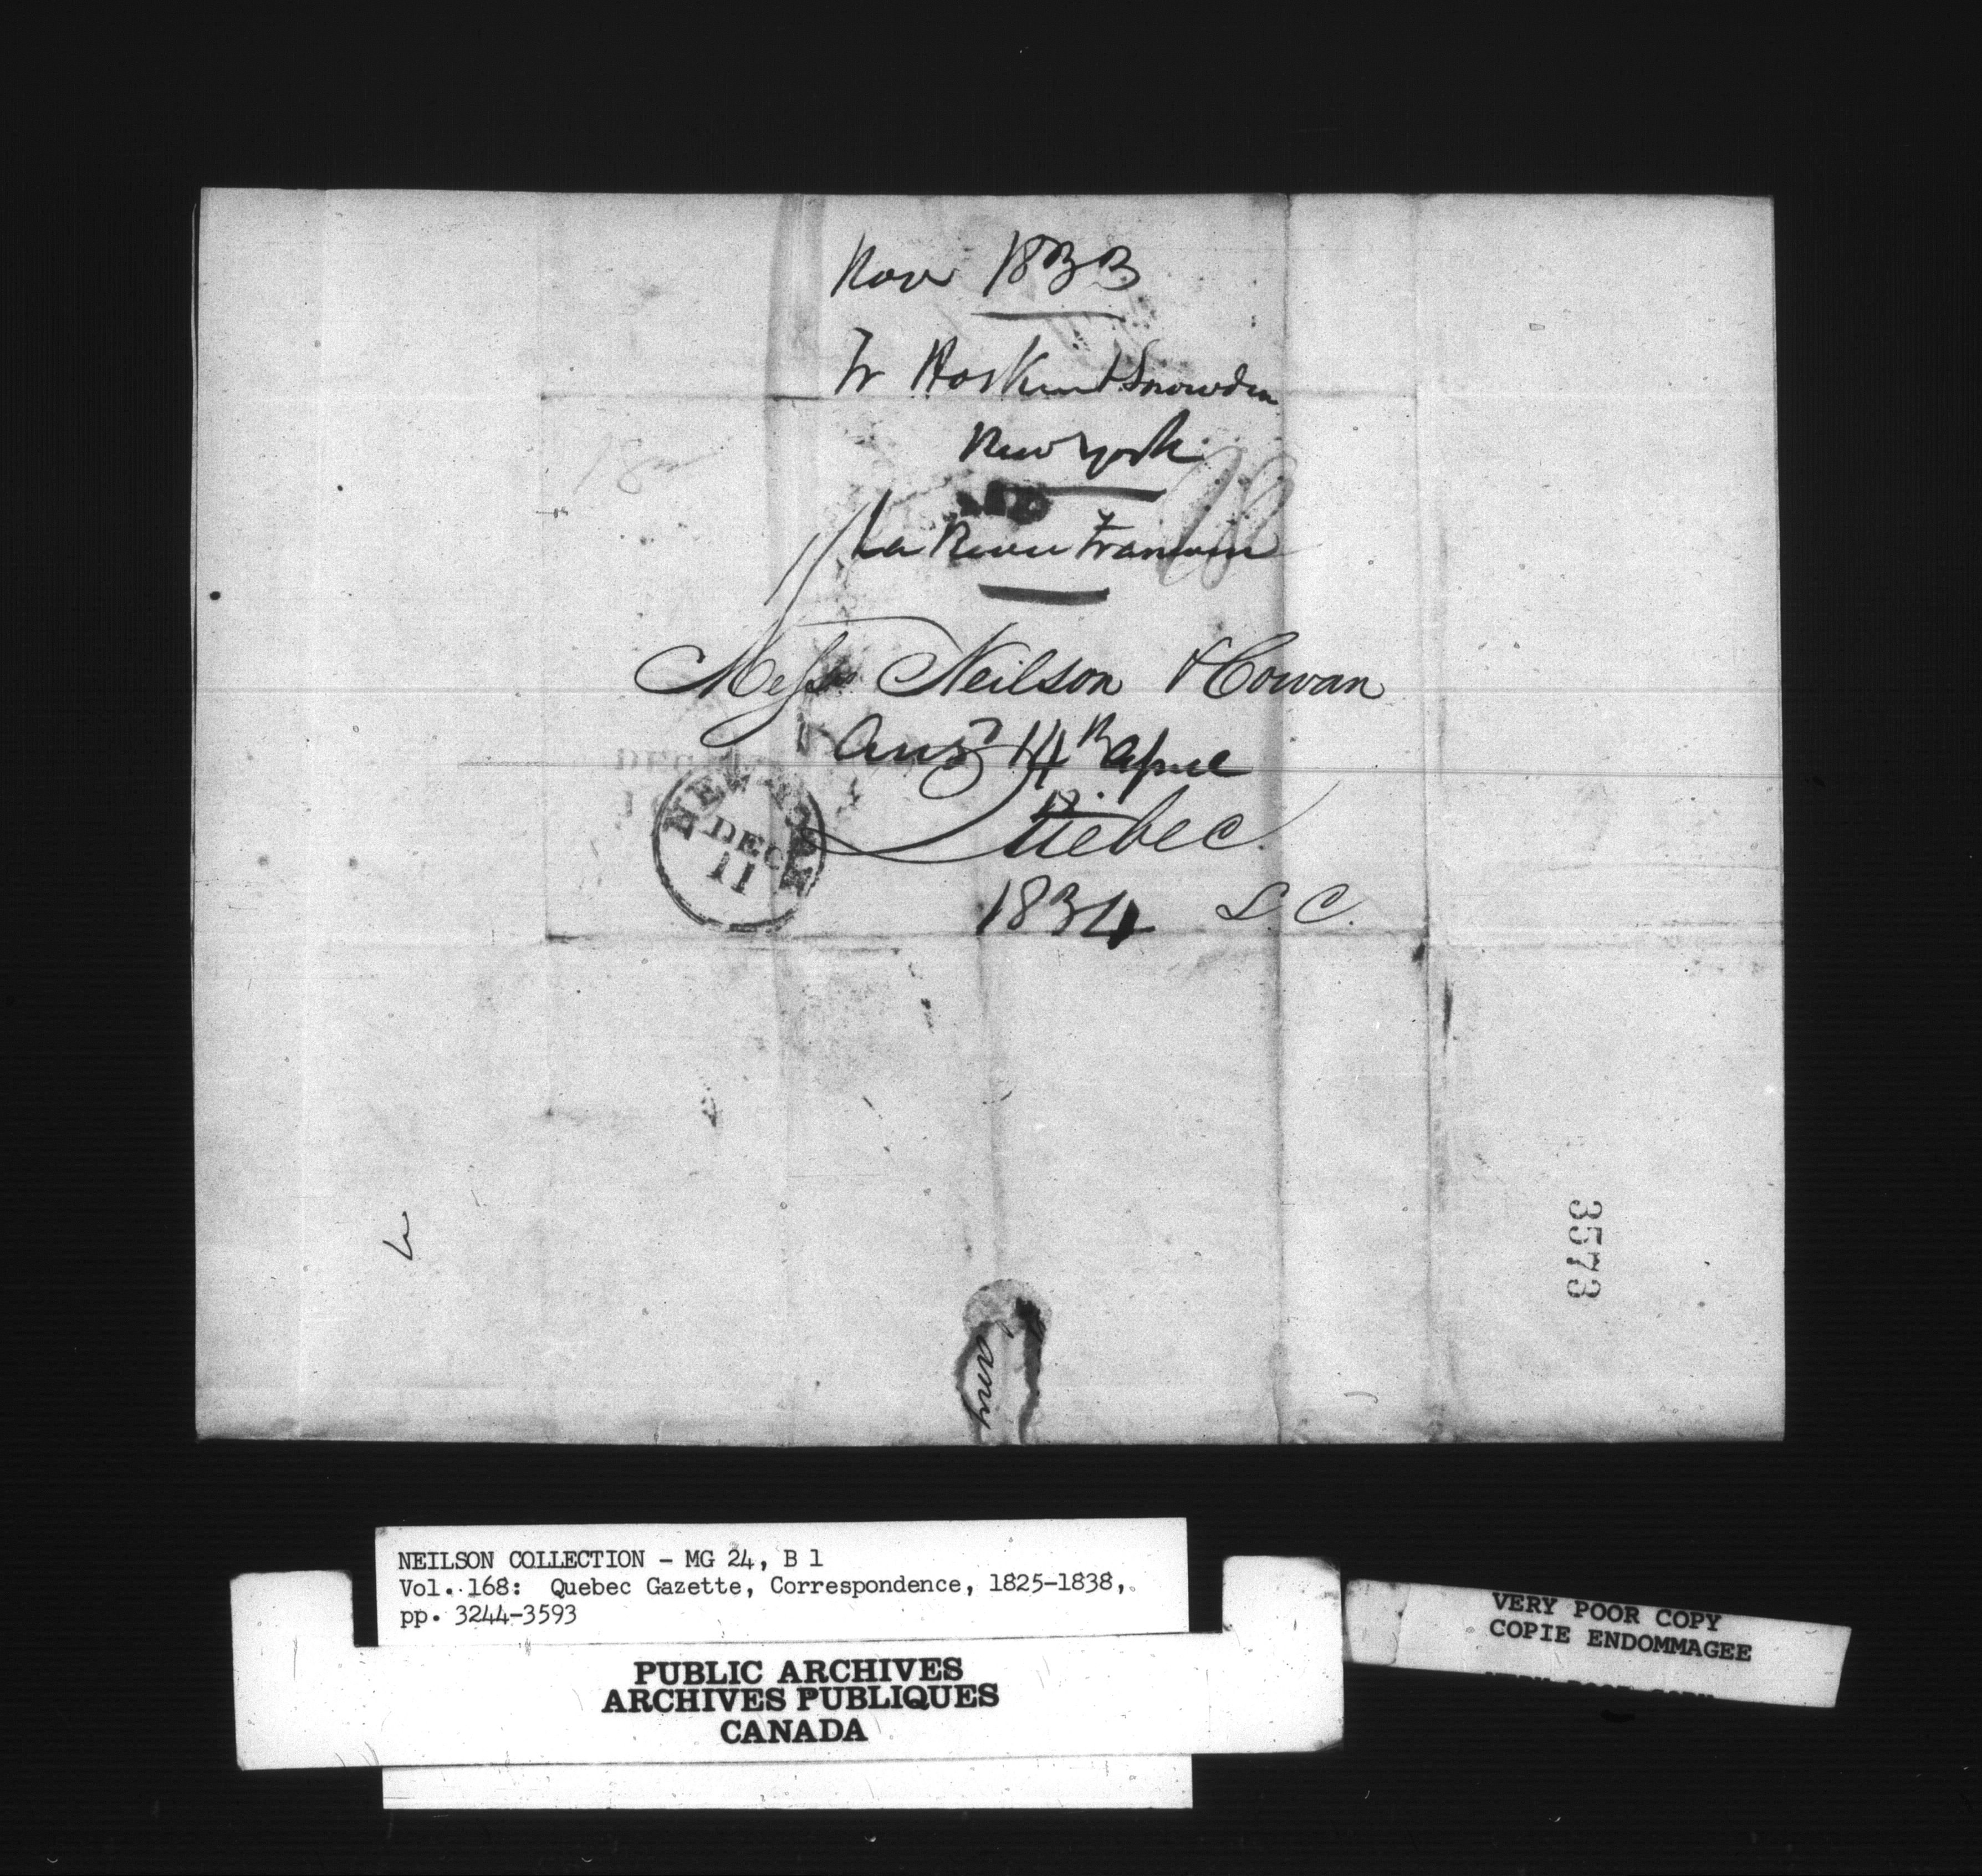 Nov 1833
Fr Hoskin & Snowden
New York
PAID
La Revue
Mess Neilson & Cowan
Ansd 14th April
Quebec
1834 L C.
NEW YORK
DEC
11
3573
NEILSON COLLECTION - MG 24, B 1
Vol. 168: Quebec Gazette, Correspondence, 1825-1838,
pp. 3244-3593
PUBLIC ARCHIVES
ARCHIVES PUBLIQUES
CANADA
VERY POOR COPY
COPIE ENDOMMAGEE